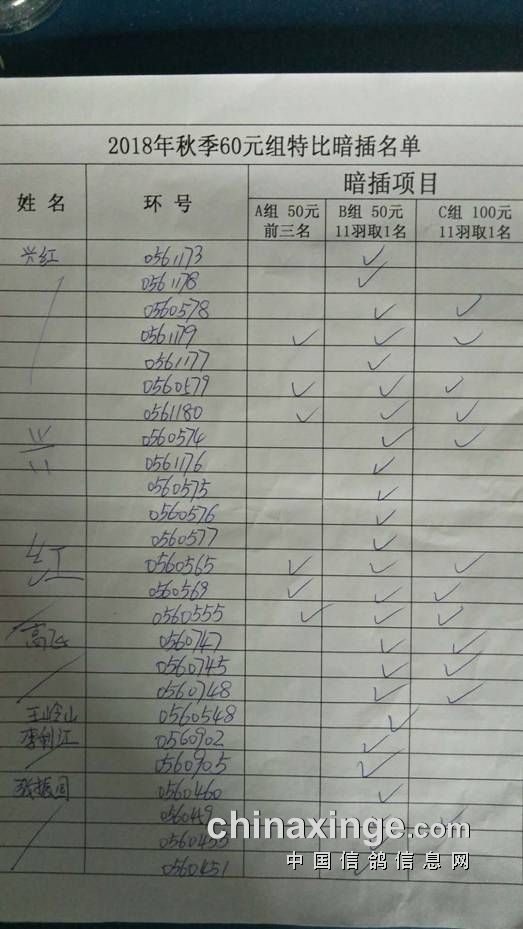 2018年秋季60元组特比暗插名单
姓 名 环 号 暗插项目
A组 50元 前三名 B组 50元 11羽取1名 C组 100元 11羽取1名
兴红 0561173 ✓
0561178 ✓
0560578 ✓ ✓
0561179 ✓ ✓ ✓
0561177 ✓
0560579 ✓ ✓ ✓
0561180 ✓ ✓ ✓
0560574 ✓ ✓
0561176 ✓
0560575 ✓
0560576 ✓
0560577 ✓
红 0560565 ✓ ✓ ✓
0560569 ✓ ✓ ✓
0560555 ✓ ✓ ✓
高飞 0560747 ✓ ✓
0560745 ✓ ✓
0560748 ✓ ✓
王岭山 0560548 ✓
李剑江 0560902 ✓
0560905 ✓
张振国 0560460 ✓
✓
0560455
0560451
chinaxinge.com
中国信鸽信息网